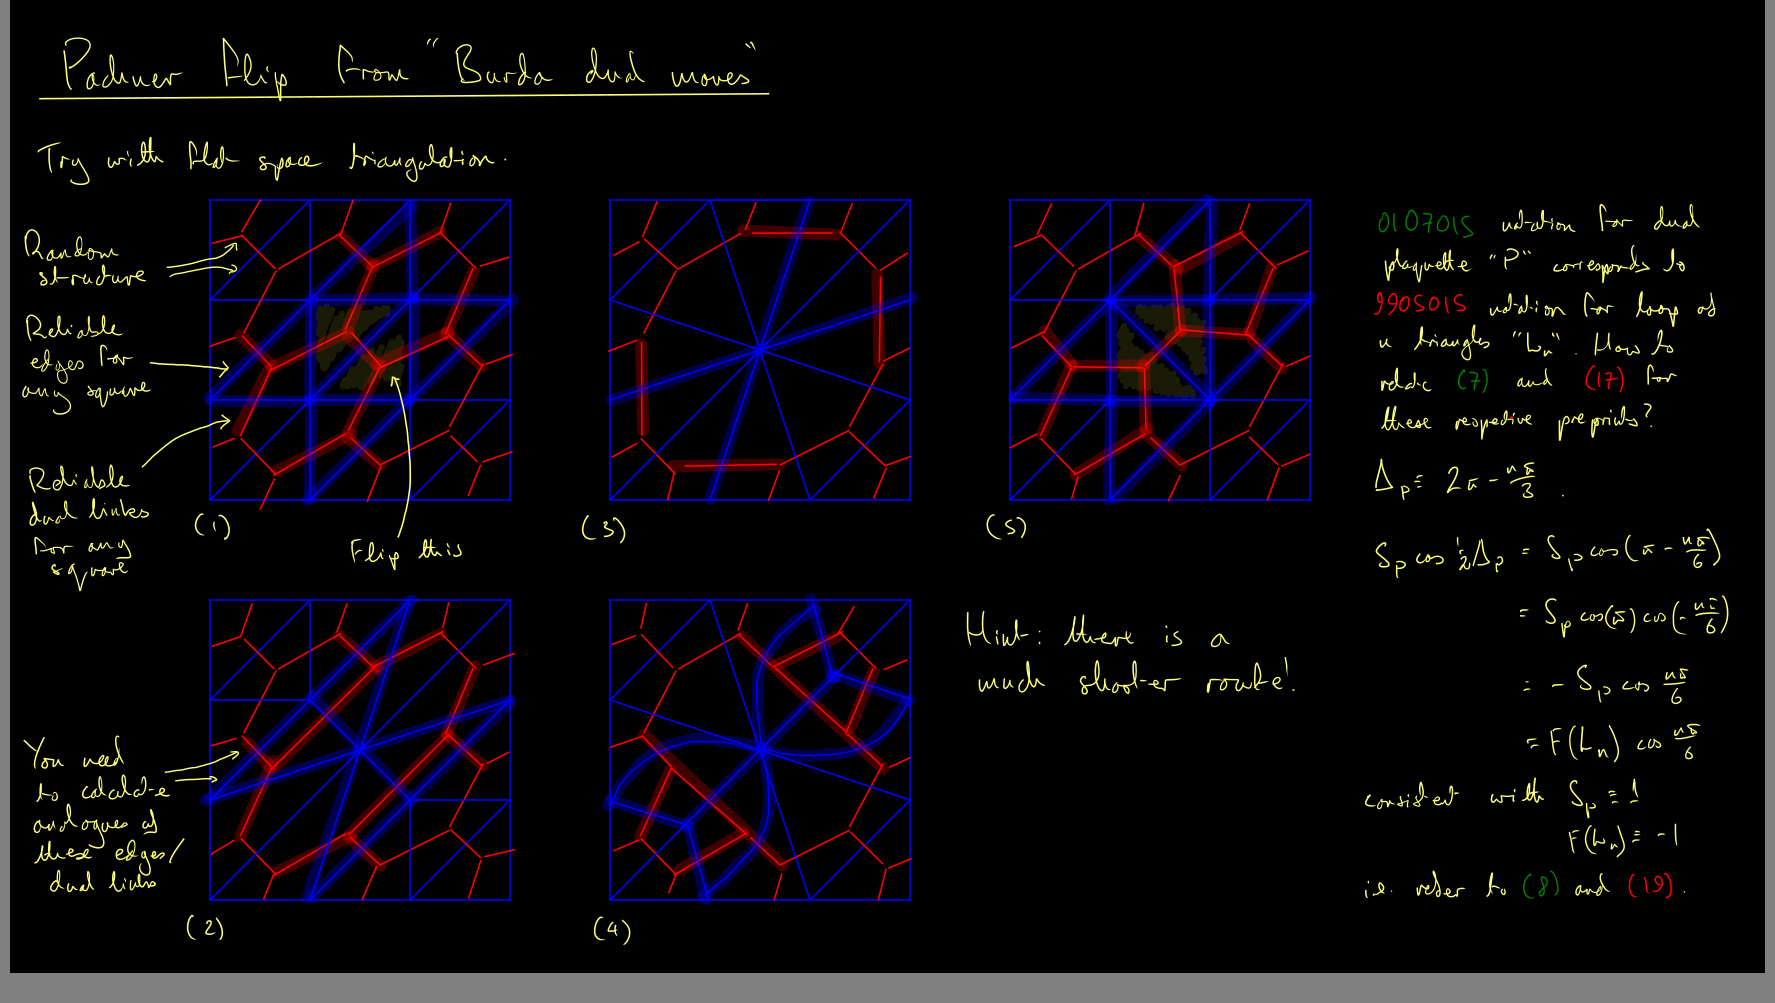 Pachner Flip From "Burda dual moves"
Try with flat space triangulation.
Random
structure
Reliable
edges for
any square
Reliable
dual links
for any
square
(1)
Flip this
(3)
(5)
You need
to calculate
analogues of
these edges/
dual links
(2)
(4)
Hint: there is a
much shorter route!
0107015 notation for dual
plaquette "P" corresponds to
9905015 notation for loop of
n triangles "Ln". How to
relate (7) and (17) for
these respective preprints?
Δp = 2π - nπ/3 .
Sp cos ½Δp = Sp cos(π - nπ/6)
= Sp cos(π) cos(-nπ/6)
= - Sp cos nπ/6
= F(Ln) cos nπ/6
consistent with Sp ≡ 1
F(Ln) ≡ -1
i.e. refer to (8) and (19).